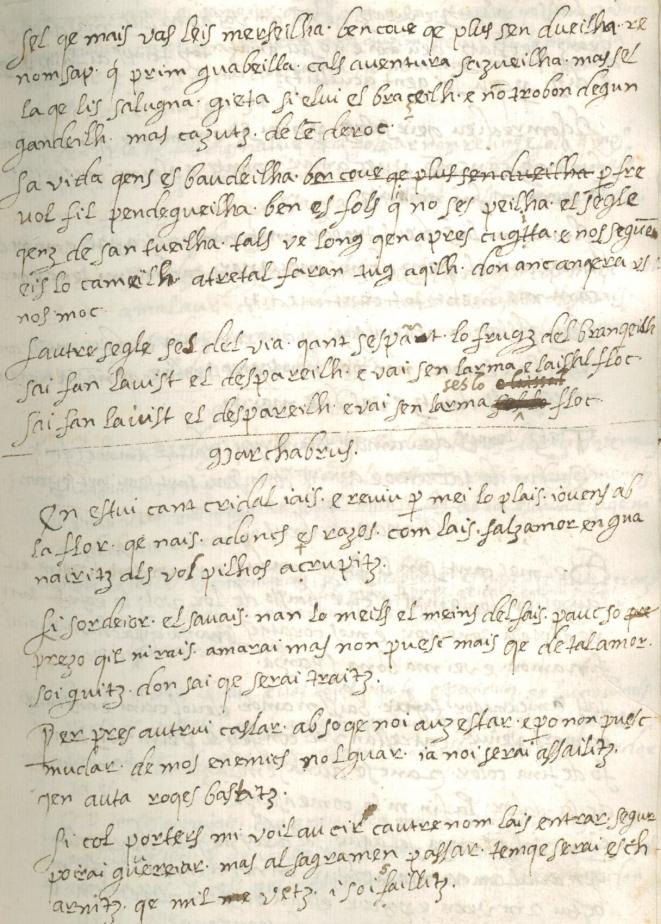 sel qe mais vas leis merseilha· ben cove qe plus sen dueilha· re
nom sap· q̃ prim guabeilla· cals aventura seizveilha· mas sel
la qe lis salugna· gieta si elui el braceilh· e nō trobon degun
gandeilh· mas cazutz· de lē deroc·
sa vida qens es baudeilha· ben cove qe plus sen dueilha p fre
vol fil pendegueilha· ben es fols q̃ no ses peilha· el segle
qenz de san tueilha· tals ve long qen apres· e nos seguē
eis lo cameilh· atretal faran tug aqilh· don anc anqera
nos moc·
lautre segle ses del via· qant sespant· lo frugz del branqeilh
sai fan lavist el despareilh· e vai sen larma e laissal floc·
sai fan lavist el despareilh· e vai sen larma ses lo floc·
Marchabrus·
En estui cant cridal iais· e reviu p mei lo plais· iovens ab
la flor· qe nais· adoncs es razos· com lais· falzamor en gua
nairitz als vol pilhos acrupitz·
Li sordeior· el savais· nan lo mechs el meins del fais· pauc so pre
prezo qil nirais· amarai mas non puesc mais qe de tal amor·
soi guitz· don sai qe serai traitz·
Per pres autrui castar· ab so qe noi auz estar· e po non puesc
mudar· de mos enemics nol guar· ia noi serai assailitz·
qen auta roqes bastitz·
Si col porters mi voil aucir cautre nom lais entrar· segur
porai guereiar· mas al sagramen passar· tem qe serai esch
arnitz· qe mil me vetz· i soi faillitz·